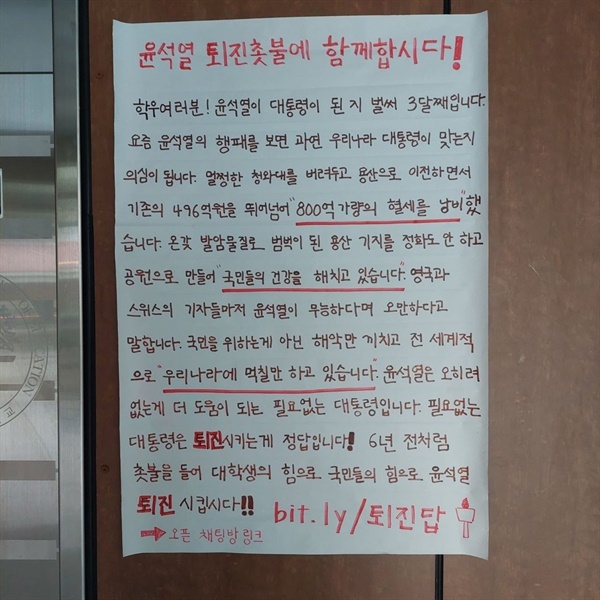 윤석열 퇴진촛불에 함께합시다!
학우여러분! 윤석열이 대통령이 된 지 벌써 3달째입니다.
요즘 윤석열의 행패를 보면 과연 우리나라 대통령이 맞는지
의심이 됩니다. 멀쩡한 청와대를 버려두고 용산으로 이전하면서
기존의 496억원을 뛰어넘어 "800억 가량의 혈세를 낭비"했
습니다. 온갖 발암물질로 범벅이 된 용산 기지를 정화도 안 하고
공원으로 만들어 "국민들의 건강을 해치고 있습니다". 영국과
스위스의 기자들마저 윤석열이 무능하다며 오만하다고
말합니다. 국민을 위하는게 아닌 해악만 끼치고 전 세계적
으로 "우리나라에 먹칠만 하고 있습니다." 윤석열은 오히려
없는게 더 도움이 되는 필요없는 대통령입니다. 필요없는
대통령은 퇴진시키는게 정답입니다! 6년 전처럼
촛불을 들어 대학생의 힘으로 국민들의 힘으로 윤석열
퇴진 시킵시다!! bit.ly/퇴진답
→ 오픈 채팅방 링크
ATION